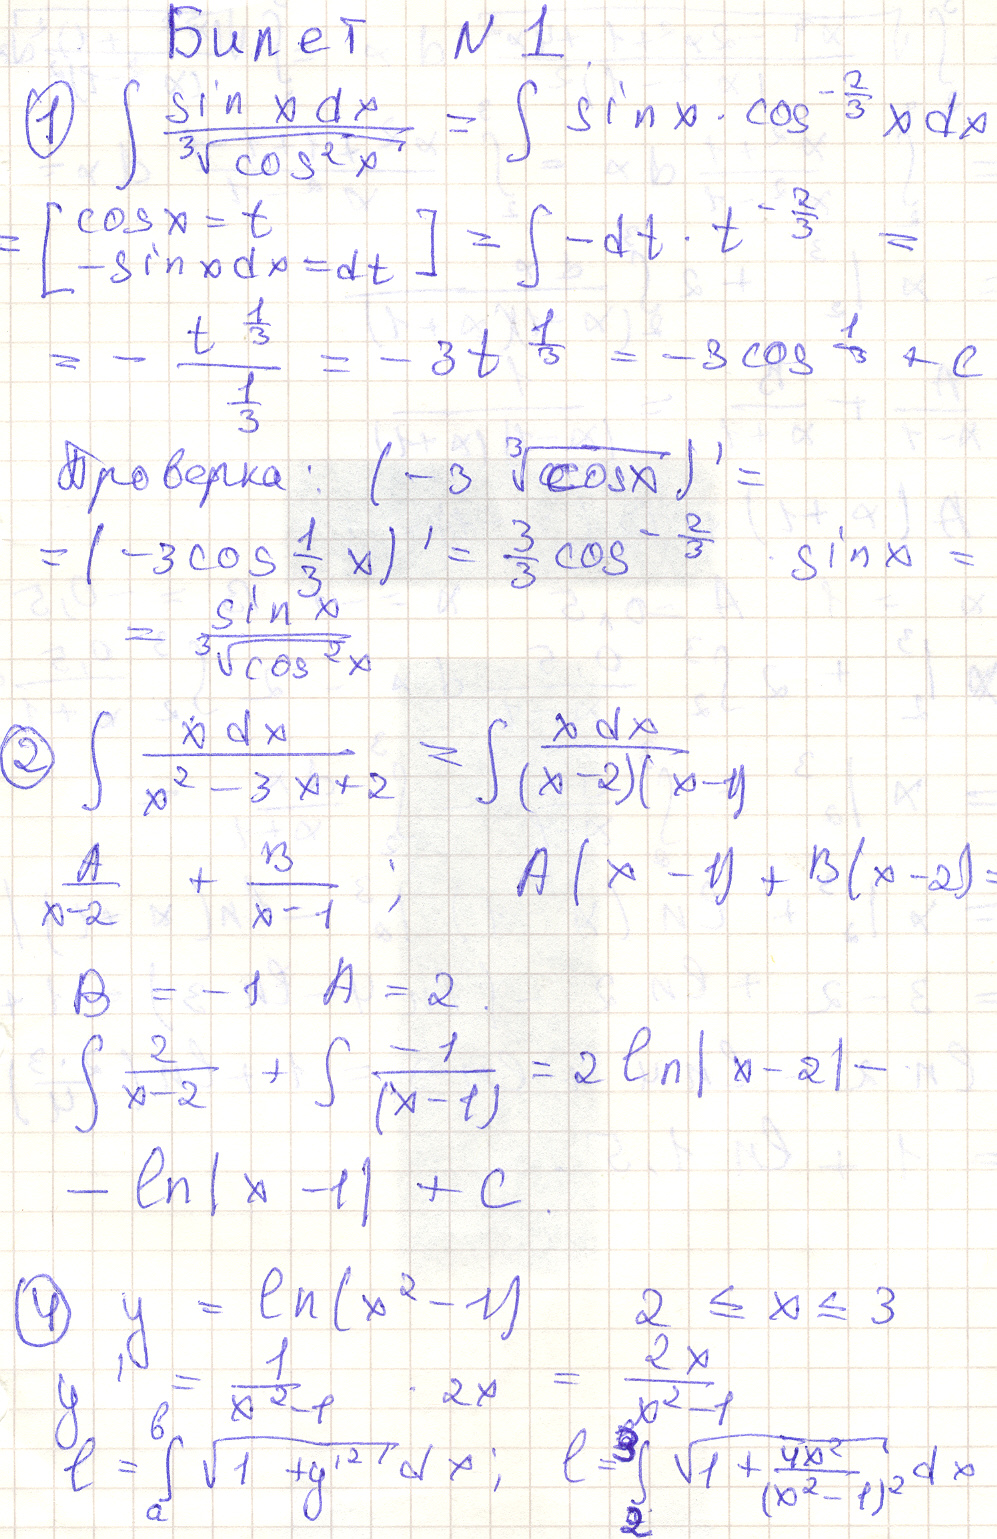 Билет N 1
① ∫ sin x dx / ∛(cos²x) = ∫ sin x · cos^(-2/3) x dx
= [ cos x = t
-sin x dx = dt ] = ∫ -dt · t^(-2/3) =
= - t^(1/3) / (1/3) = -3t^(1/3) = -3 cos^(1/3) + C
Проверка: (-3 ∛(cos x))' =
= (-3 cos^(1/3) x)' = 3/3 cos^(-2/3) · sin x =
= sin x / ∛(cos²x)
② ∫ x dx / (x² - 3x + 2) = ∫ x dx / ((x-2)(x-1))
A/(x-2) + B/(x-1) ; A(x-1) + B(x-2) =
B = -1 A = 2.
∫ 2/(x-2) + ∫ -1/(x-1) = 2 ln|x-2| -
- ln|x-1| + C.
④ y = ln(x²-1) 2 ≤ x ≤ 3
y' = 1/(x²-1) · 2x = 2x/(x²-1)
l = ∫_a^в √(1 + y'²) dx; l = ∫_2^3 √(1 + 4x²/(x²-1)²) dx